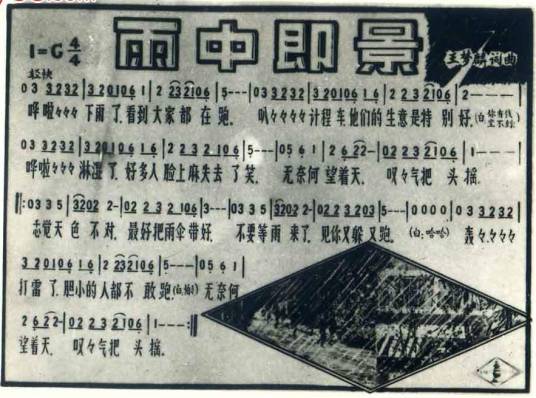 雨中即景
1=G 4/4
王梦麟词曲
轻快
03 3232 | 320106 1 | 2 232106 | 5--- | 03 3232 | 320106 16 | 2 2 3 2106 | 2---
哗啦々々々 下雨 了.看到大家都 在 跑. 叭々々々々计程 车.他们的生意是特 别好.(白:你有钱坐不到)
03 3232 | 320106 1 | 2 232106 | 5--- | 0561 | 2 622- | 02 2 3 2106 | 1---
哗啦々々々 淋湿 了 好多人 脸上麻失去 了 笑. 无奈何 望着天. 叹々气把 头 摇.
0335 | 3202 2- | 02 2 3 2106 | 3--- | 0335 | 3202 2- | 02 2 3 203 | 5--- | 0000 | 03 3232
感觉天 色 不对. 最好把雨伞带好. 不要等雨 来了. 见你又躲又跑. (白:哈哈) 轰々々々々
320106 16 | 2 232106 | 5--- | 0561
打雷 了.胆小的人都不 敢跑 无奈何
2 622- | 02 2 3 2106 | 1---
望着天. 叹々气把 头 摇.